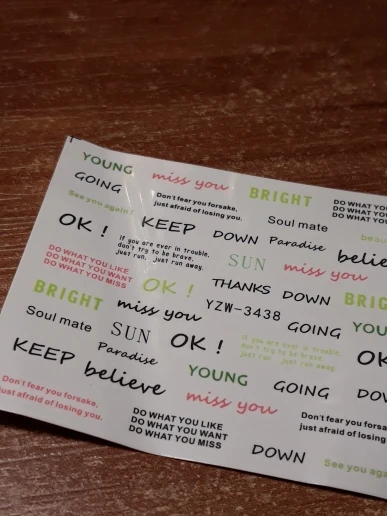 YOUNG
miss you
BRIGHT
DO WHAT YOU
DO WHAT YOU
DO WHAT YOU
GOING
Don't fear you forsake,
just afraid of losing you.
Soul mate
See you again!
OK !
KEEP
DOWN
Paradise
If you are ever in trouble,
don't try to be brave,
just run, just run away.
SUN
miss you
DO WHAT YOU LIKE
DO WHAT YOU WANT
DO WHAT YOU MISS
OK !
THANKS
DOWN
BRIGHT
miss you
YZW-3438
GOING
Soul mate
SUN
OK !
If you are ever in trouble,
don't try to be brave,
just run, just run away.
KEEP
Paradise
believe
YOUNG
GOING
Don't fear you forsake,
just afraid of losing you.
miss you
DO WHAT YOU LIKE
DO WHAT YOU WANT
DO WHAT YOU MISS
Don't fear you forsake,
just afraid of losing you.
DOWN